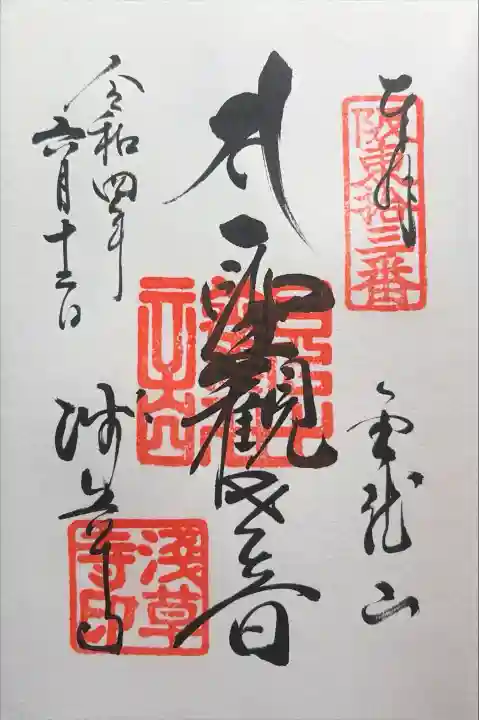 奉拝
阪東拾三番
金龍山
聖観世音
浅草寺
淺草寺印
令和四年
六月十三日